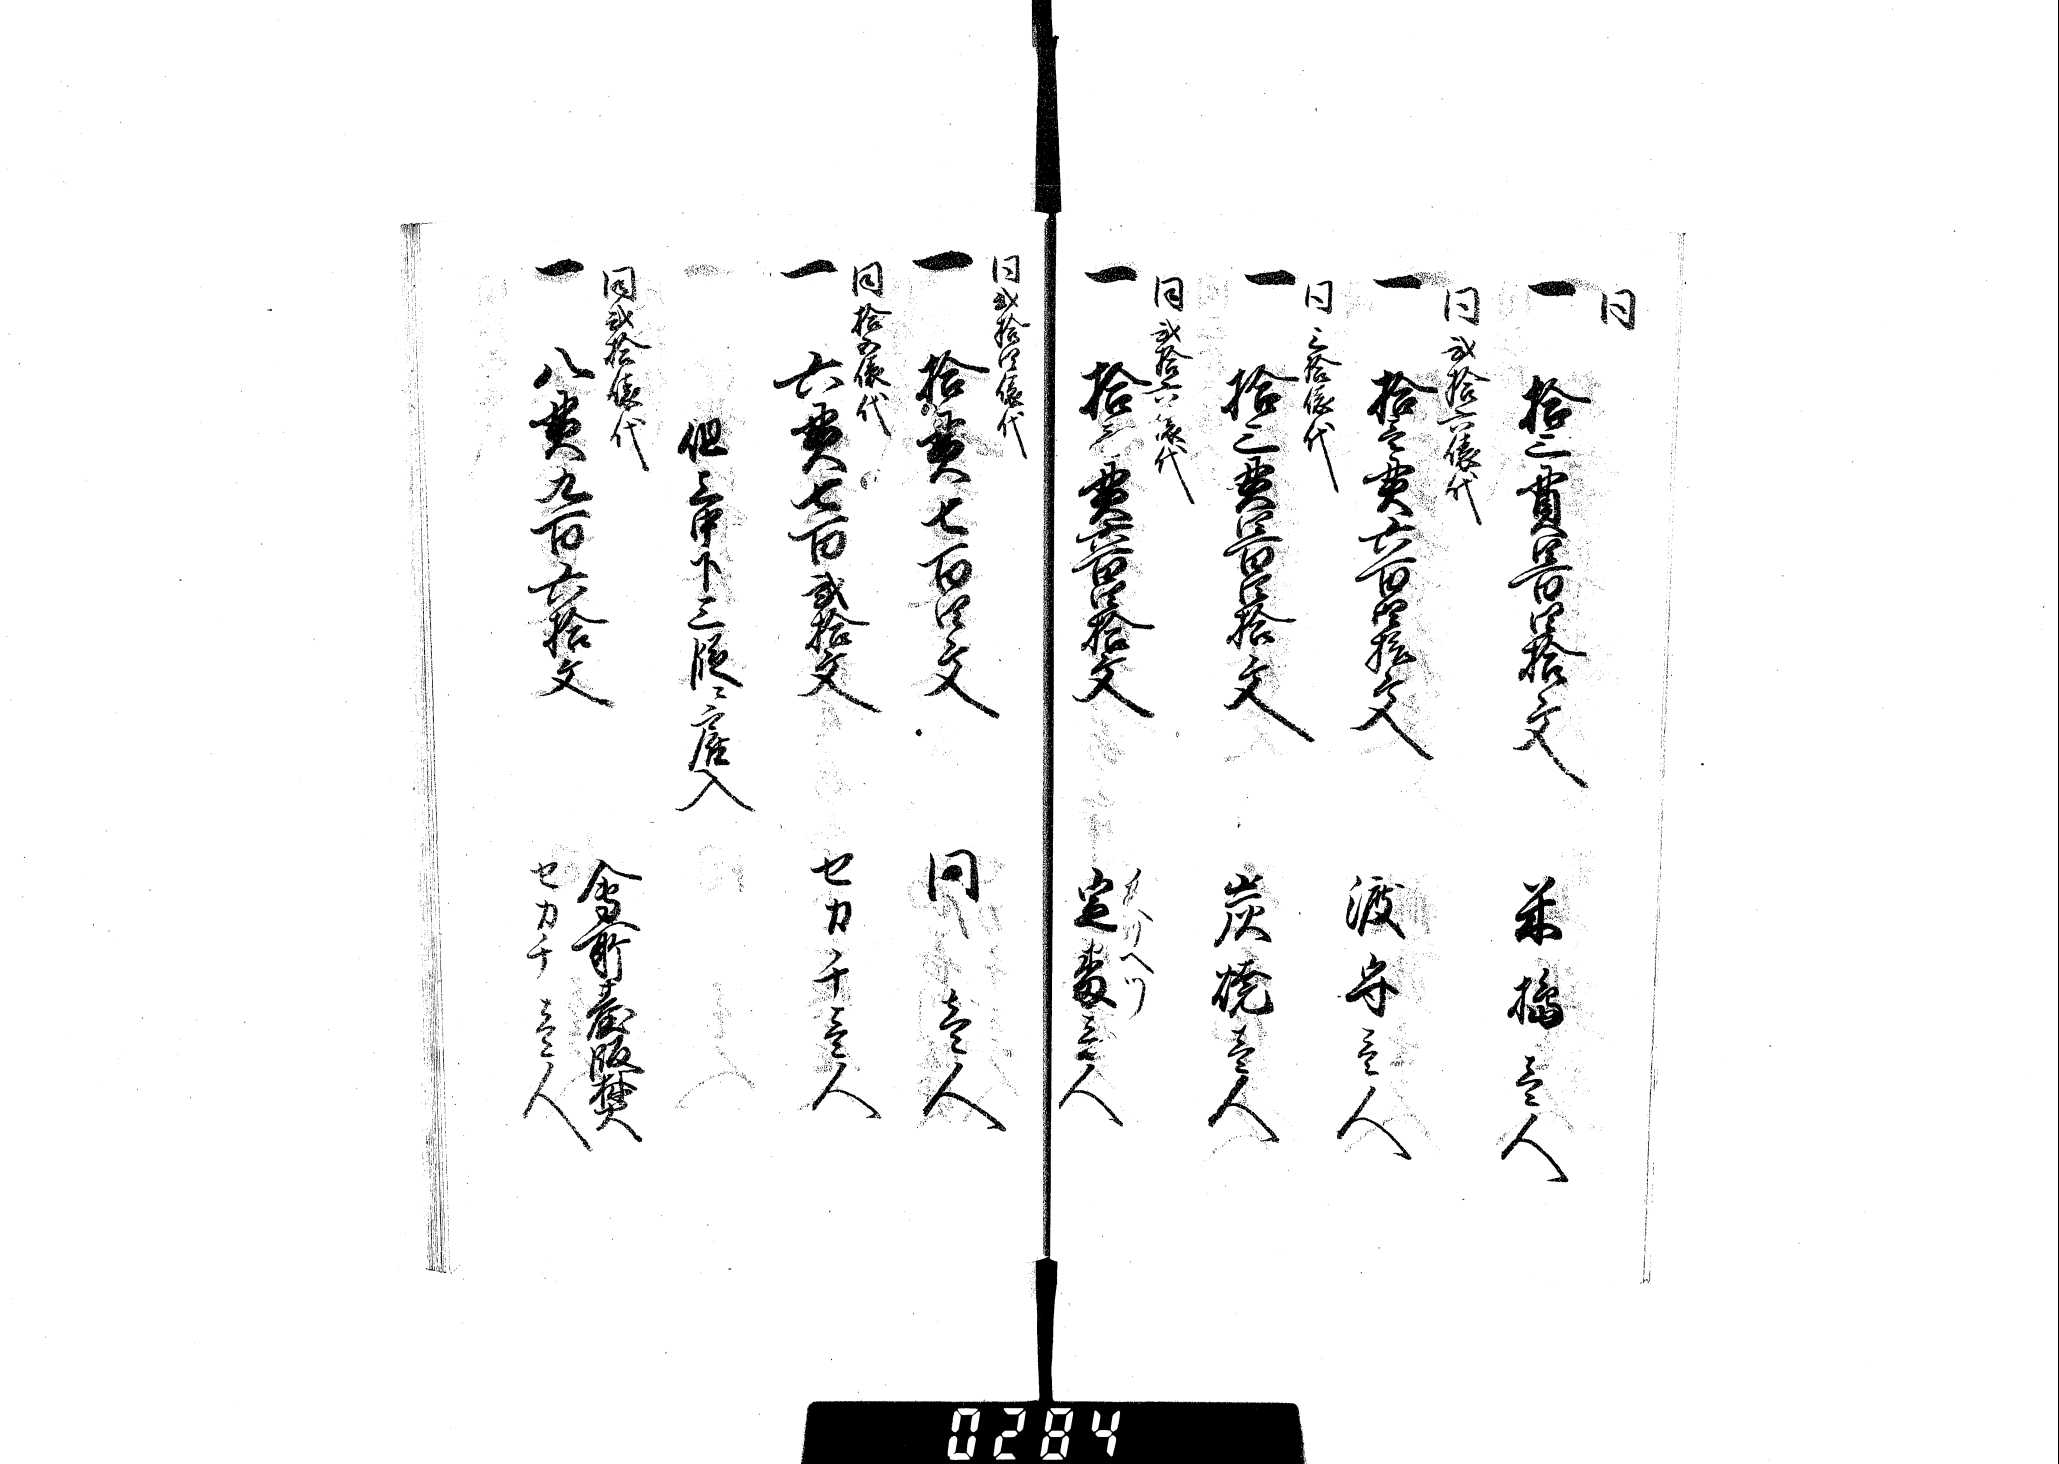 同
一 拾三貫四百四拾文 米搗壱人
同弐拾六俵代
一 拾壱貫六百四拾文 渡守壱人
同三拾俵代
一 拾三貫四百四拾文 炭焼壱人
同弐拾六俵代
一 拾三貫六百四拾文 定番壱人
同弐拾四俵代
一 拾貫七百四文 同 壱人
同拾五俵代
一 六貫七百弐拾文 セカチ壱人
但上中下三段ニ雇入
同弐拾俵代
一 八貫九百六拾文 会所蔵飯焚
セカチ 壱人
0284